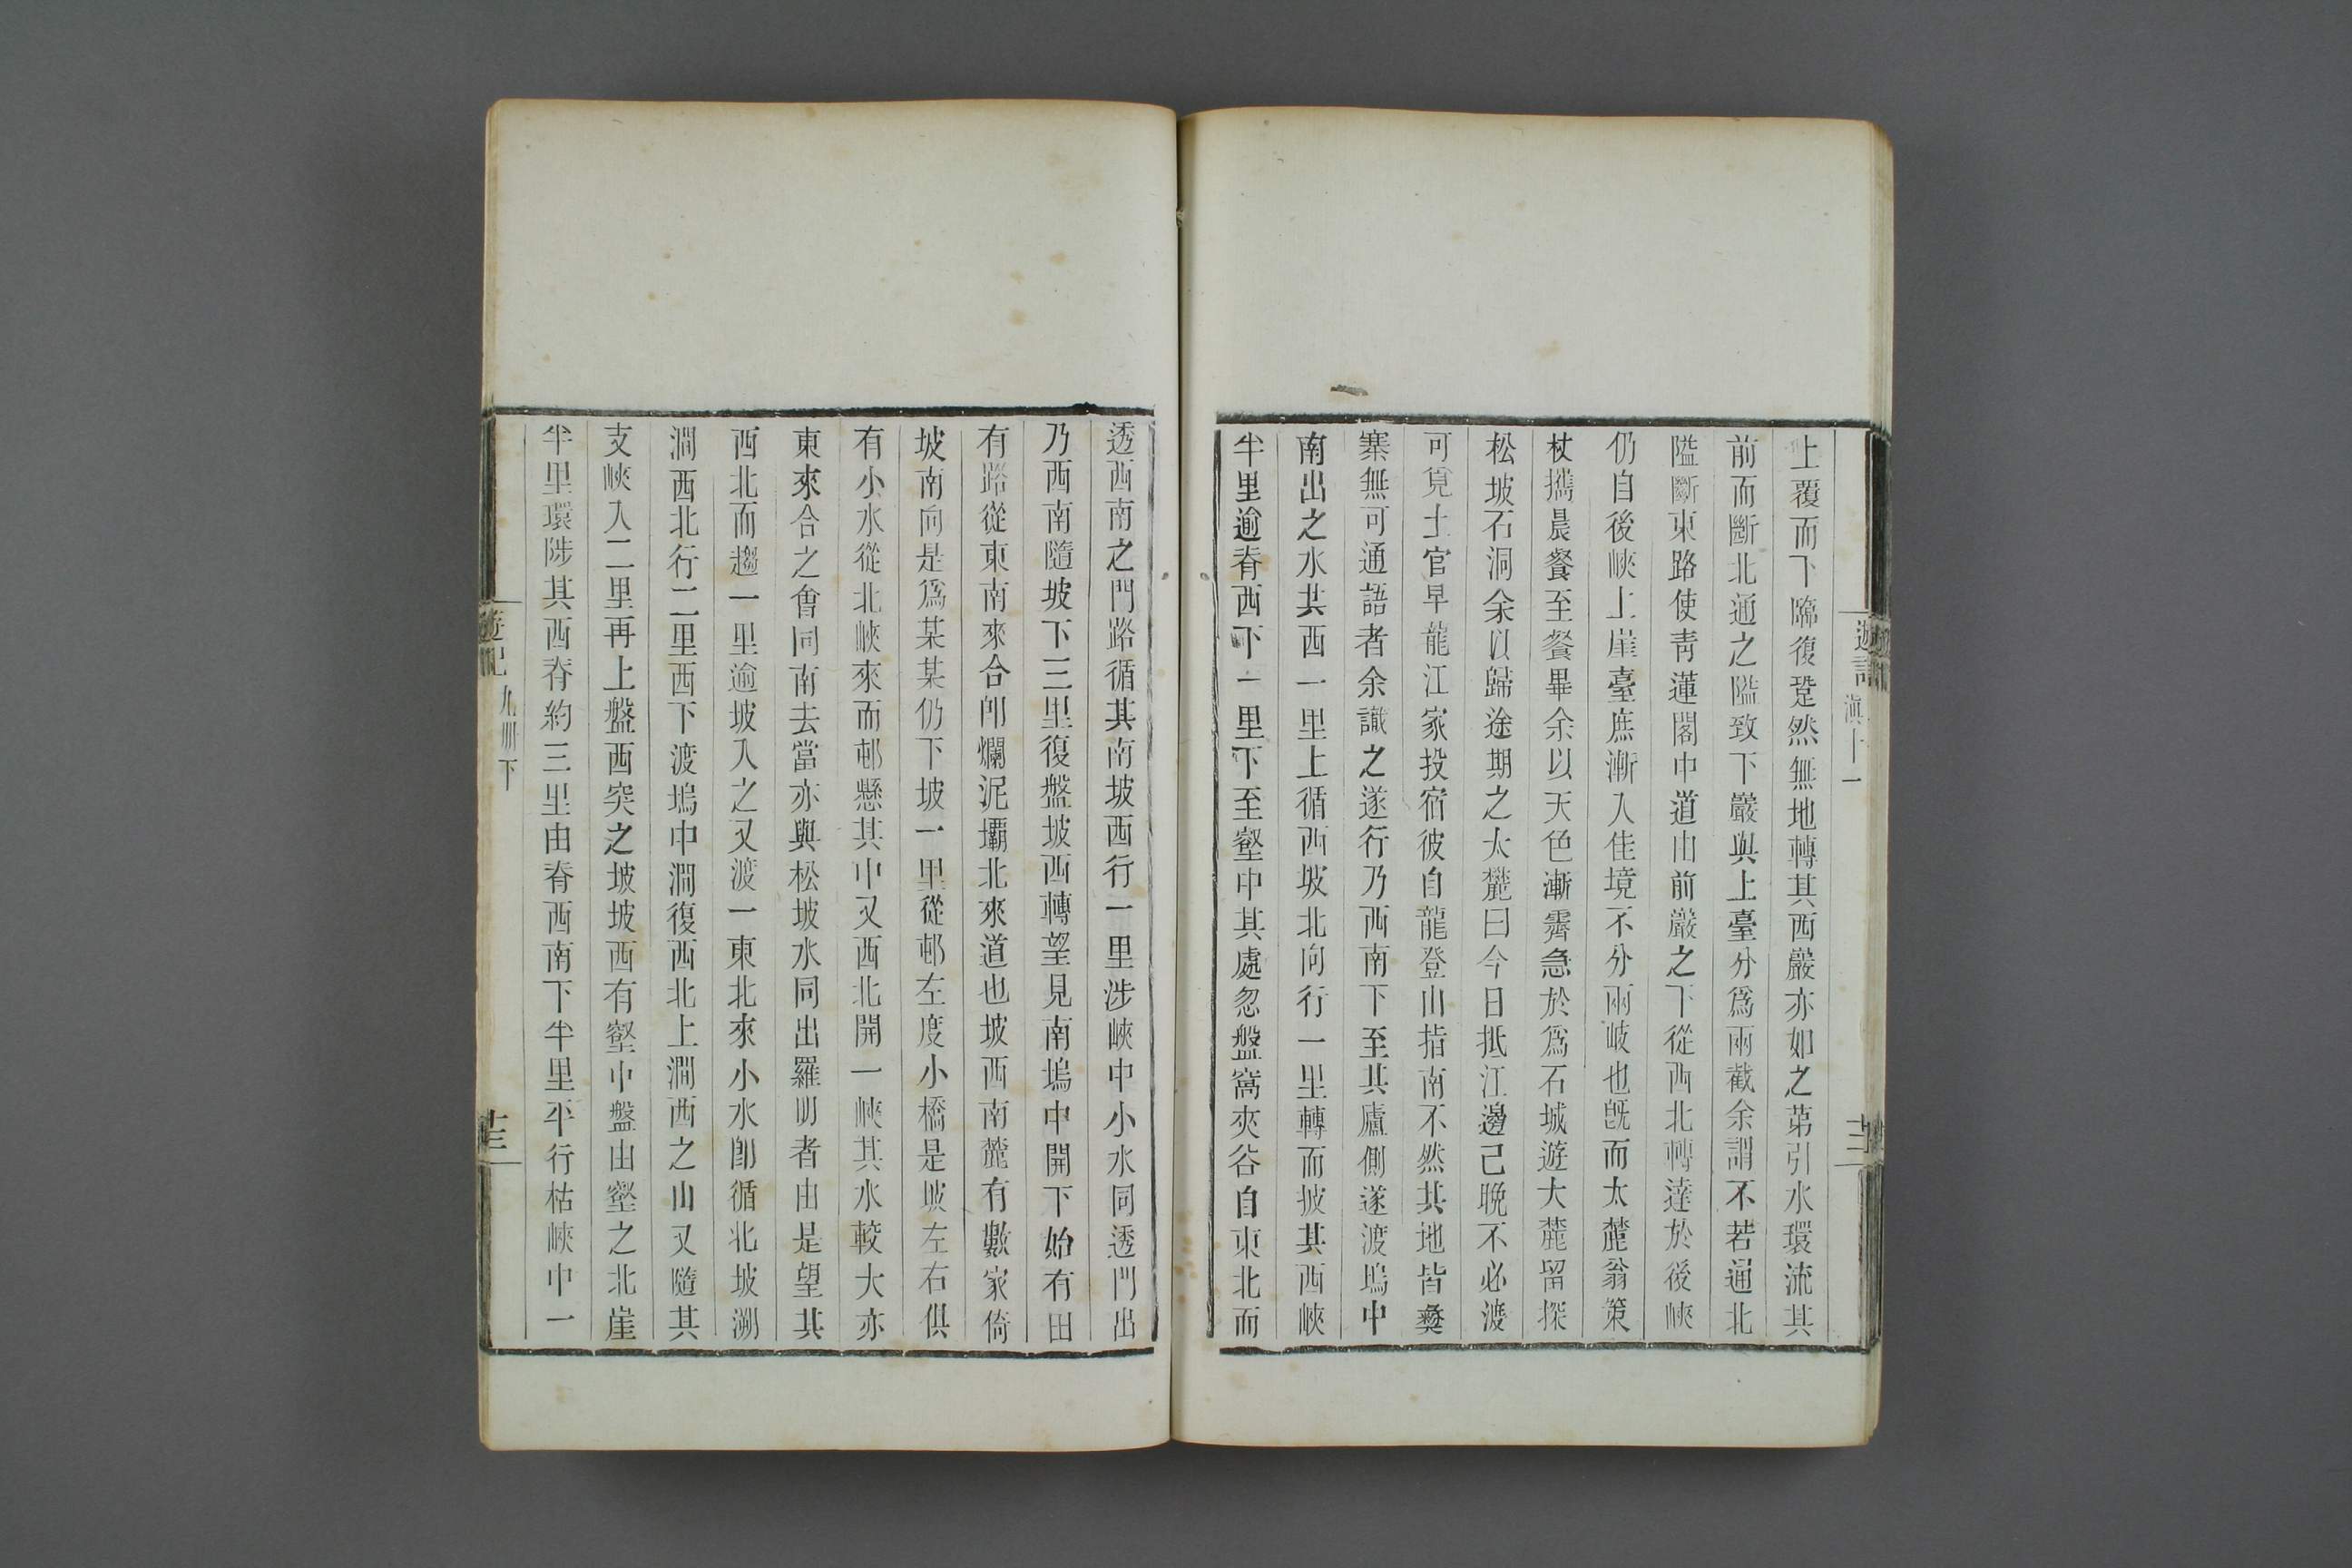 遊記 滇十一 十二
上覆而下隳復跫然無地轉其西巖亦如之第引水環流其
前而斷北通之隘致下巖與上臺分爲兩截余謂不若通北
隘斷東路使靑蓮閣中道由前巖之下從西北轉達於後峽
仍自後峽上崖臺庶漸入佳境不分兩岐也旣而太麓翁策
杖攜晨餐至餐畢余以天色漸霽急於爲石城遊大麓留探
松坡石洞余以歸途期之太麓曰今日抵江邊已晚不必渡
可覓土官早龍江家投宿彼自龍登山指南不然其地皆彝
寨無可通語者余識之遂行乃西南下至其廬側遂渡塢中
南出之水其西一里上循西坡北向行一里轉而披其西峽
半里逾脊西下一里下至壑中其處忽盤窩夾谷自東北而
透西南之門路循其南坡西行一里涉峽中小水同透門出
乃西南隨坡下三里復盤坡西轉望見南塢中開下始有田
有路從東南來合卽爛泥壩北來道也坡西南麓有數家倚
坡南向是爲某某仍下坡一里從邨左度小橋是坡左右俱
有小水從北峽來而邨懸其中又西北開一峽其水較大亦
東來合之會同南去當亦與松坡水同出羅明者由是望其
西北而趨一里逾坡入之又渡一東北來小水卽循北坡溯
澗西北行二里西下渡塢中澗復西北上澗西之山又隨其
支峽入二里再上盤西突之坡坡西有壑中盤由壑之北崖
半里環陟其西脊約三里由脊西南下半里平行枯峽中一
遊記 九冊下 十三